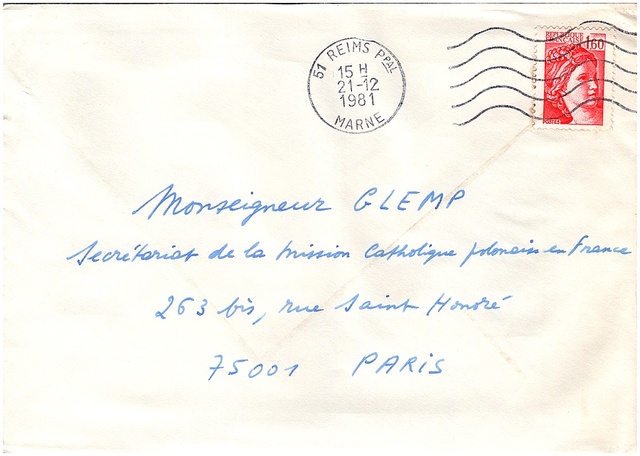 51 REIMS Ppal
15 H
21-12
1981
MARNE
REPUBLIQUE FRANCAISE 1,60
POSTES
Monseigneur GLEMP
Secrétariat de la Mission Catholique polonais en France
263 bis, rue Saint Honoré
75001 PARIS